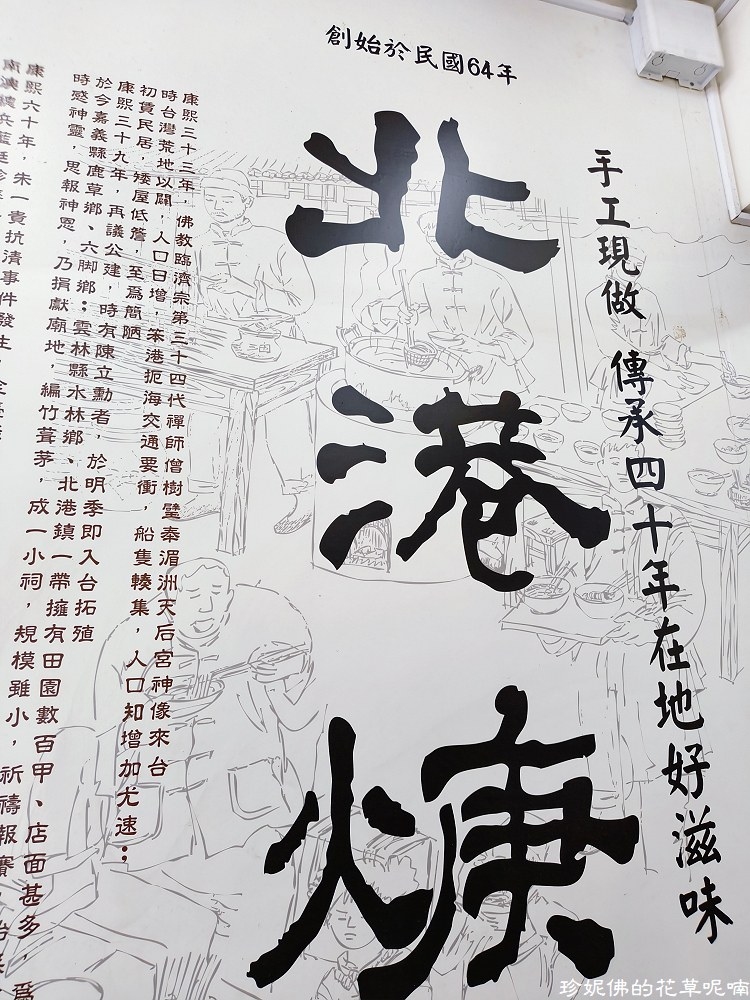 創始於民國64年
手工現做 傳承四十年在地好滋味
北港焿
康熙三十三年，佛教臨濟宗第三十四代禪師僧樹璧奉湄洲天后宮神像來台
時台灣荒地以闢，人口日增，笨港扼海交通要衝，船隻輳集，人口知增加尤速；
初賃民居，矮屋低簷，至為簡陋
康熙三十九年，再議公建，時有陳立勳者，於明季即入台拓殖
於今嘉義縣鹿草鄉、六脚鄉；雲林縣水林鄉、北港鎮一帶擁有田園數百甲、店面甚多，為
時感神靈，思報神恩，乃捐獻廟地，編竹葺茅，成一小祠，規模雖小，祈禱報賽，
康熙六十年，朱一貴抗清事件發生，
南澳總兵藍廷珍
珍妮佛的花草呢喃